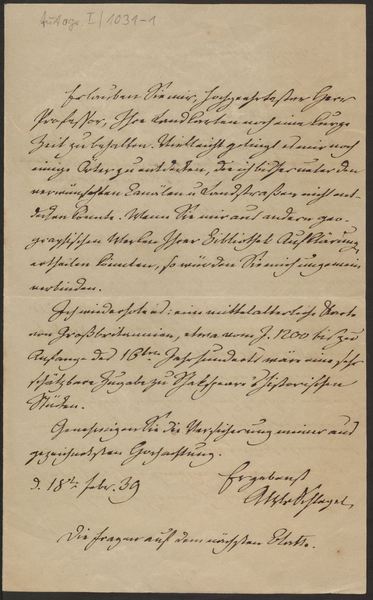 Autogr. I/1031-1
Erlauben Sie mir, Hochgeehrtester Herr
Professor, Ihre Landkarten noch eine kurze
Zeit zu behalten. Vielleicht gelingt es mir noch
einige Örter zu entdecken, die ich bisher unter den
verwünschten Canälen u Landstraßen nicht ent-
decken konnte. Wenn Sie mir aus andern geo-
graphischen Werken Ihrer Bibliothek Aufklärung
ertheilen könnten, so würden Sie mich ungemein
verbinden.
Ich wiederhole es: eine mittelalterliche Karte
von Großbritannien, etwa vom J. 1200 bis zu
Anfange des 16ten Jahrhunderts wäre eine sehr
schätzbare Zugabe zu Shakspeare's historischen
Stücken.
Genehmigen Sie die Versicherung meiner aus
gezeichnetsten Hochachtung.
d. 18te Febr. 39
Ergebenst
AWvSchlegel
Die Fragen auf dem nächsten Blatte.